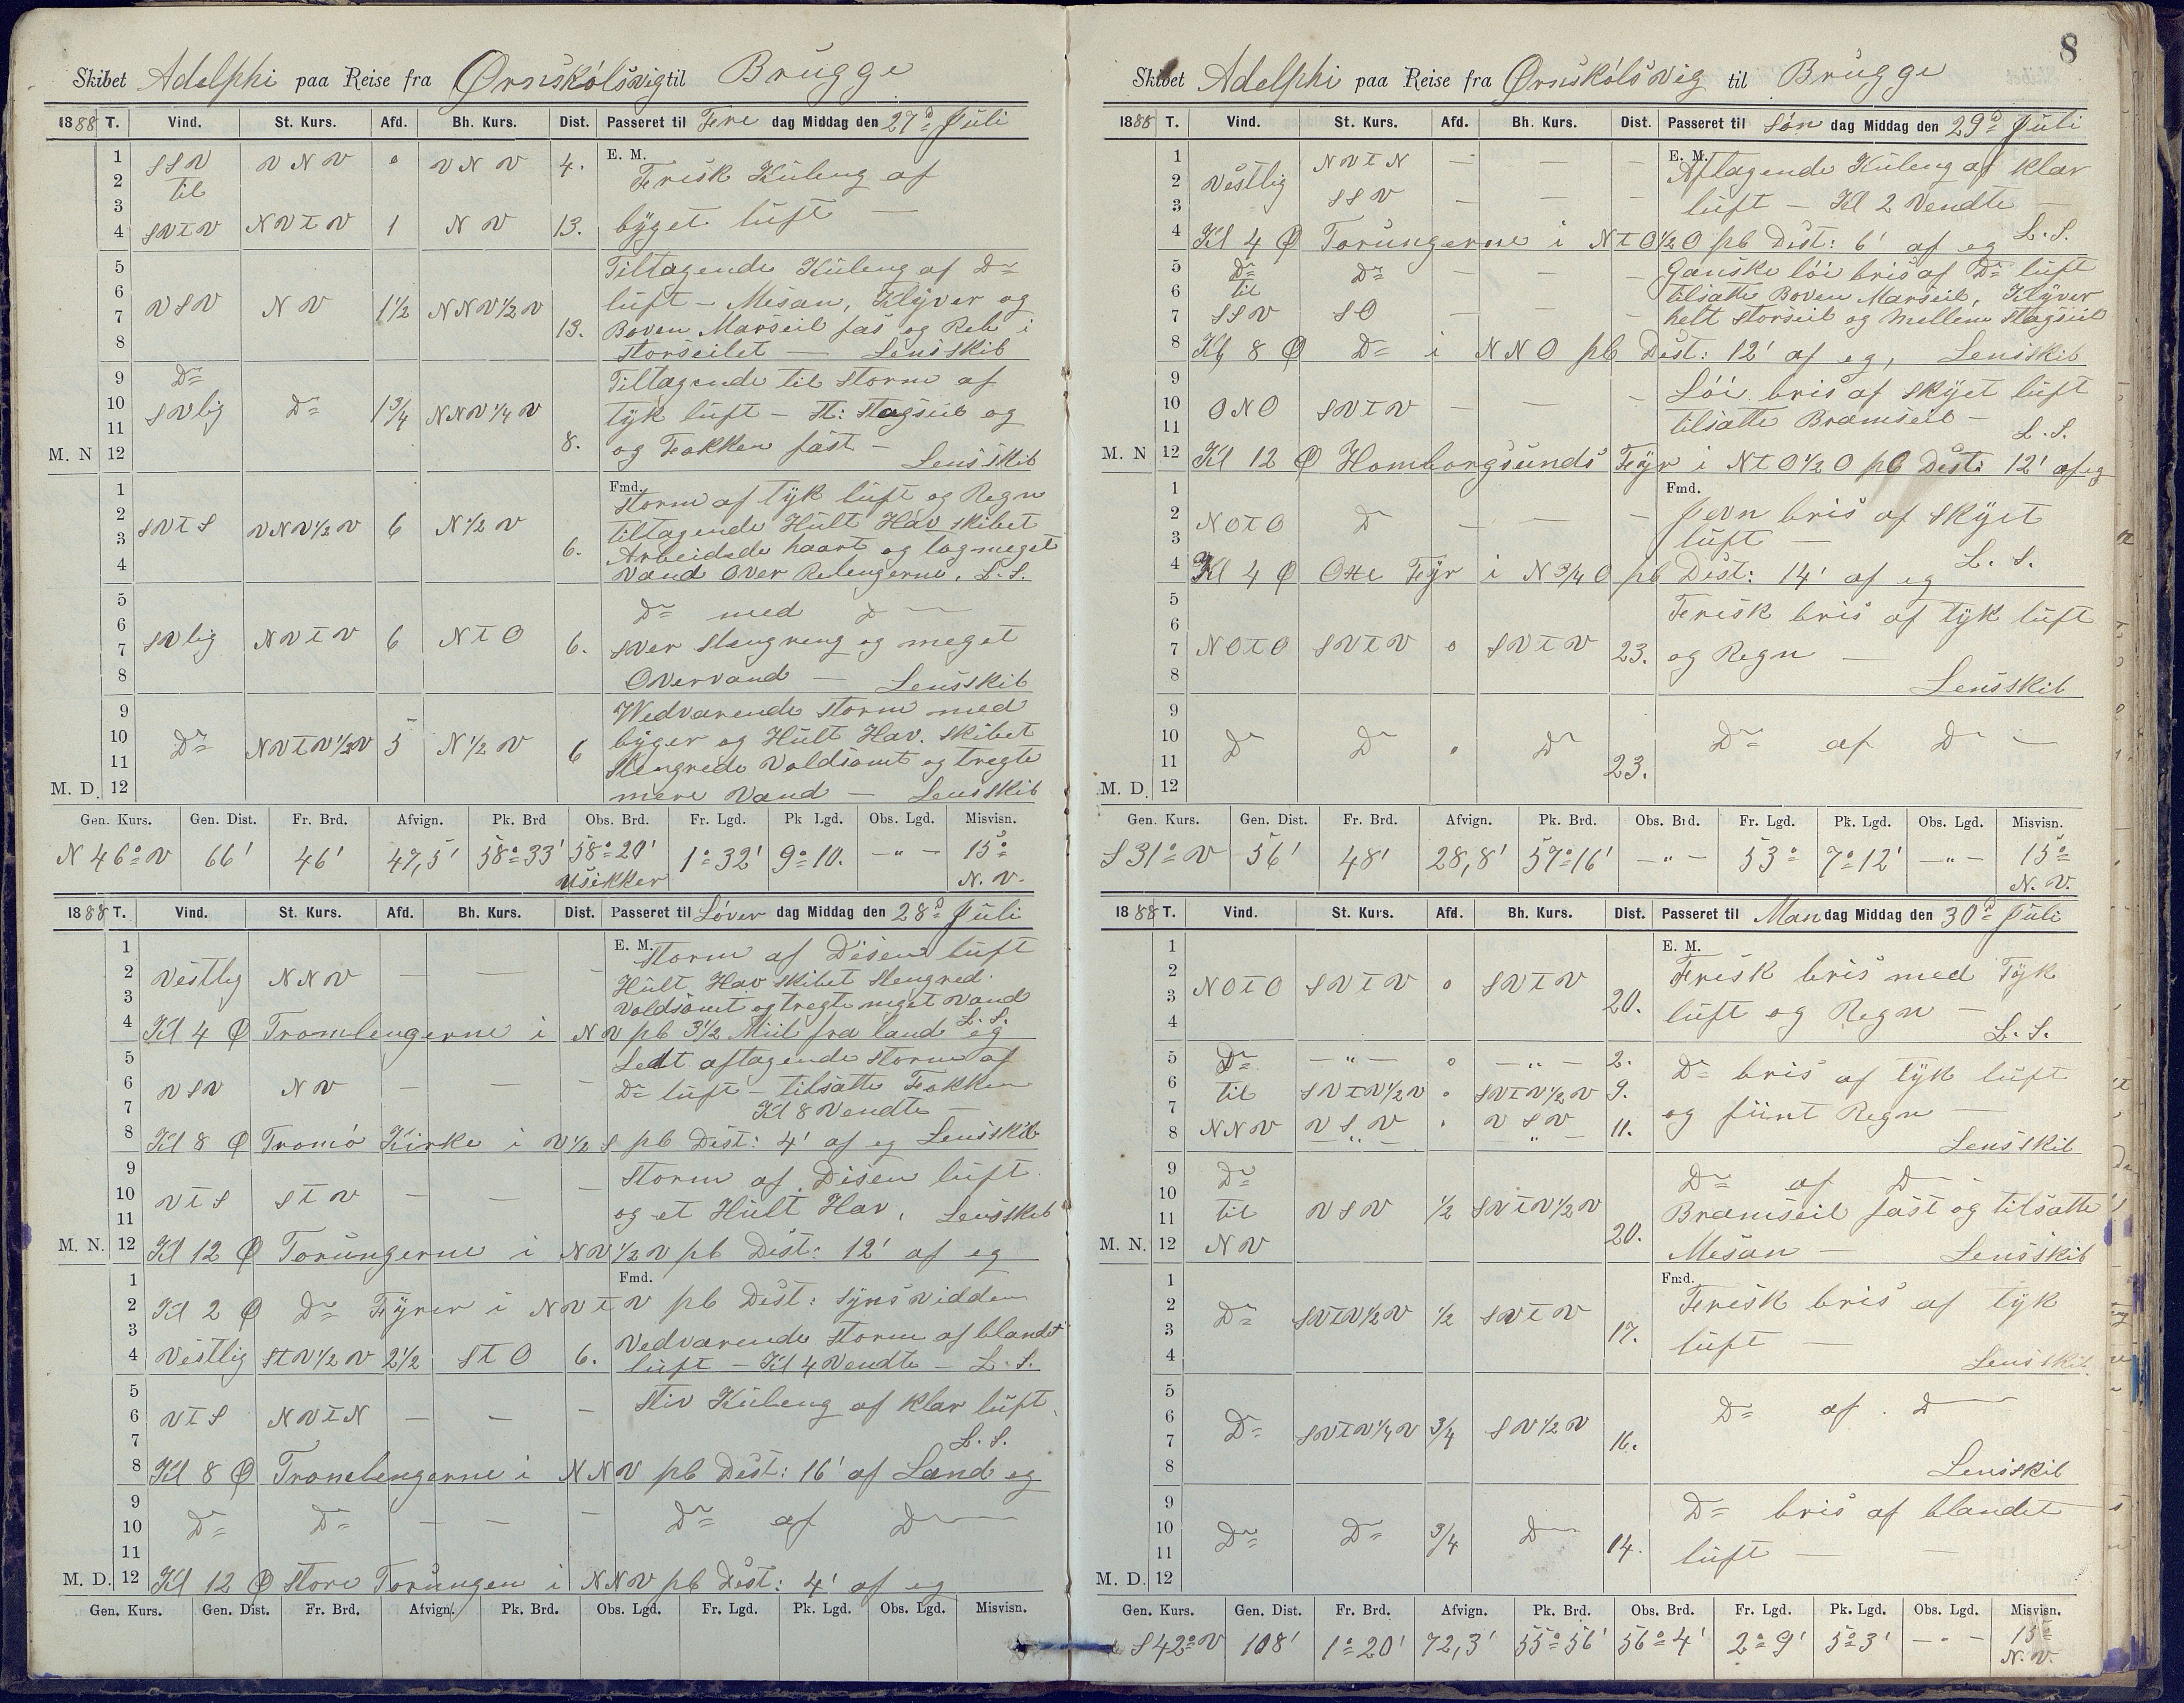 Skibet Adelphi paa Reise fra Ørnskölsvig til Brugge
1888 T. Vind. St. Kurs. Afd. Bh. Kurs. Dist. Passeret til Fre dag Middag den 27d Juli
E. M.
1 SSV VNV 0 VNV 4. Frisk Kuleng af
2 til
3
4 SVTV NVTV 1 NV 13. byget luft —
5 Tiltagende Kuleng af Do
6 VSV NV 1½ NNV½V luft - Mesan, Klyver og
7 13. Boven Marseil fas og Reb i
8 Storseilet — Lensskib
9 Do Tiltagende til Storm af
10 SVlig Do 1¾ NNV¼V tyk luft - St: Stagseil og
11 8. og Fokken fast —
M. N 12 Lensskib
Fmd.
1 Storm af tyk luft og Regn
2 SVTS VNV½V 6 N½V tiltagende Hult Hav skibet
3 6. Arbeidede haart og tog meget
4 Vand Over Relengerne. L. S.
5 Do med D
6 SVlig NVTV 6 NTO 6. Sver Slengreng og meget
7
8 Overvand — Lensskib
9 Wedvarende Storm med
10 Do NVTV½V 5 N½V byger og Hult Hav. skibet
11 6 Slengrede Voldsomt og tregte
M. D. 12 mere Vand — Lensskib
Gen. Kurs. Gen. Dist. Fr. Brd. Afvign. Pk. Brd Obs. Brd. Fr. Lgd. Pk Lgd. Obs. Lgd. Misvisn.
N 46° V 66' 46' 47,5' 58° 33' 58° 20' 1° 32' 9° 10. —"— 15°
Usikker N. V.
1888 T. Vind. St. Kurs. Afd. Bh. Kurs. Dist. Passeret til Löver dag Middag den 28d Juli
E. M.
1 Storm af Disen luft
2 Vestlig NNV — — — Hult Hav skibet Slengred
3 Voldsomt og tregte meget Vand
4 Kl 4 Ø Tromlengerne i NV pb 3½ Miil fra land eg L. S.
5 Ledt aftagende Storm af
6 VSV NV — — — Do luft - tilsatte Fokken
7 Kl 8 Vendte —
8 Kl 8 Ø Tromö Kirke i V½S pb Dist: 4' af eg Lensskib
9 Storm af Disen luft
10 VTS STV — — — og et Hult Hav, Lensskib
11
M. N. 12 Kl 12 Ø Torungerne i NV½V pb Dist: 12' af eg
Fmd.
1
2 Kl 2 Ø Do Fyrer i NVTV pb Dist: Synsvidden
3 Vedvarende Storm af blandet
4 Vestlig STV½V 2½ STO 6. luft - Kl 4 Vendte - L. S.
5 Stiv Kuleng af klar luft
6 VTS NVTN — — —
7 L. S.
8 Kl 8 Ø Tromlengerne i NNV pb Dist: 16' af Land eg
9
10 Do Do — — — Do af D
11
M. D. 12 Kl 12 Ø Store Torungen i NNV pb Dist: 4' af eg
Gen. Kurs. Gen. Dist. Fr. Brd. Afvign. Pk. Brd. Obs. Lgd. Fr. Lgd. Pk. Lgd. Obs. Lgd. Misvisn.
8
Skibet Adelphi paa Reise fra Ørnskölsvig til Brugge
1888 T. Vind. St. Kurs. Afd. Bh. Kurs. Dist. Passeret til Søn dag Middag den 29d Juli
E. M.
1 NVTN — — — Aftagende Kuleng af klar
2 Vestlig
3 SSV — — — luft - Kl 2 Vendte —
4 Kl 4 Ø Torungerne i NTO½O pb Dist: 6' af eg L. S.
5 Do Do — — — Ganske löi bris af Do luft
6 til tilsatte Boven Marseil, Klyver
7 SSV SO — — — helt Storseil og Mellem Stagseil
8 Kl 8 Ø Do i NNO pb Dist: 12' af eg, Lensskib
9 Löi bris af skyet luft
10 ONO SVTV — — — tilsatte Bramseil —
11 L. S.
M. N 12 Kl 12 Ø Homborgsunds Fyr i NTO½O pb Dist: 12' af eg
Fmd.
1 Jevn bris af skyet
2 NOTO D — — —
3 luft —
4 Kl 4 Ø Oxe Fyr i N¾O pb Dist: 14' af eg L. S.
5 Frisk bris af tyk luft
6
7 NOTO SVTV 0 SVTV 23. og Regn —
8 Lensskib
9
10 D D 0 D Do af D
11 23.
M. D. 12
Gen. Kurs. Gen. Dist. Fr. Brd. Afvign. Pk. Brd. Obs. Brd. Fr. Lgd. Pk. Lgd. Obs. Lgd. Misvisn.
S 31° V 56' 48' 28,8' 57° 16' —"— 53° 7° 12' —"— 15°
N. V.
1888 T. Vind. St. Kurs. Afd. Bh. Kurs. Dist. Passeret til Man dag Middag den 30d Juli
E. M.
1
2 Frisk bris med Tyk
3 NOTO SVTV 0 SVTV 20. luft og Regn —
4 L. S.
5 Do —"— 0 —"— 2. Do bris af tyk luft
6 til SVTV½V 0 SVTV½V 9.
7 og fiint Regn —
8 NNV VSV 0 VSV 11. Lensskib
—"— —"—
9 Do Do af D
10 til VSV ½ SVTV½V Bramseil fast og tilsatte
11 20.
M. N. 12 NV Mesan — Lensskib
Fmd.
1 Frisk bris af tyk
2 Do SVTV½V ½ SVTV
3 17. luft —
4 Lensskib
5
6 Do af D
7 Do SVTV¼V ¾ SV½V 16.
8 Lensskib
9 Do bris af blandet
10 Do Do ¾ D 14.
11 luft —
M. D. 12
Gen. Kurs. Gen. Dist. Fr. Brd. Afvign. Pk. Brd. Obs. Brd. Fr. Lgd. Pk. Lgd. Obs. Lgd. Misvisn.
S 42° V 108' 1° 20' 72,3' 55° 56' 56° 4' 2° 9' 5° 3' —"— 15°
N. V.